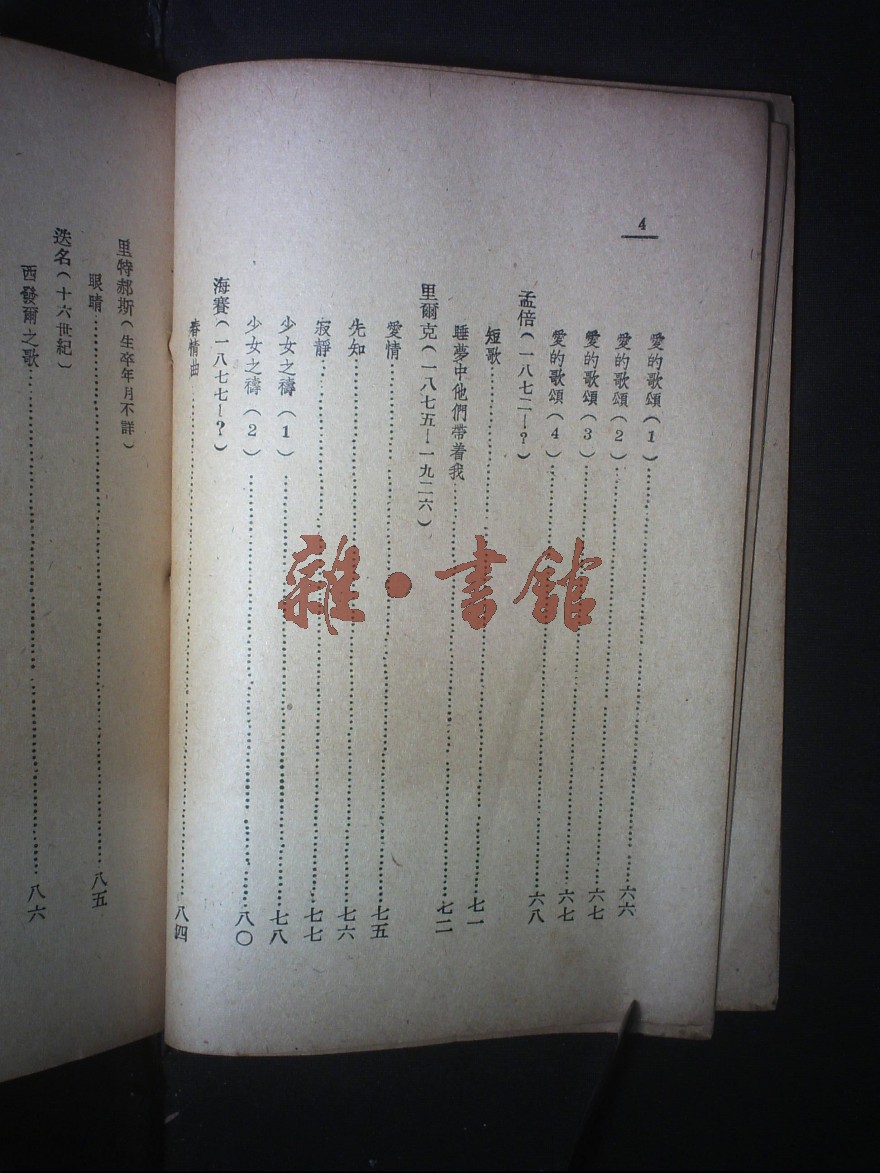 4
愛的歌頌(1)……六六
愛的歌頌(2)……六七
愛的歌頌(3)……六七
愛的歌頌(4)……六八
孟倍(一八七二—?)
短歌……七一
睡夢中他們帶着我……七二
里爾克(一八七五—一九二六)
愛情……七五
先知……七六
寂靜……七七
少女之禱(1)……七八
少女之禱(2)……八〇
海賽(一八七七—?)
春情曲……八四
里特郝斯(生卒年月不詳)
眼睛……八五
迭名(十六世紀)
西發爾之歌……八六
雜·書館